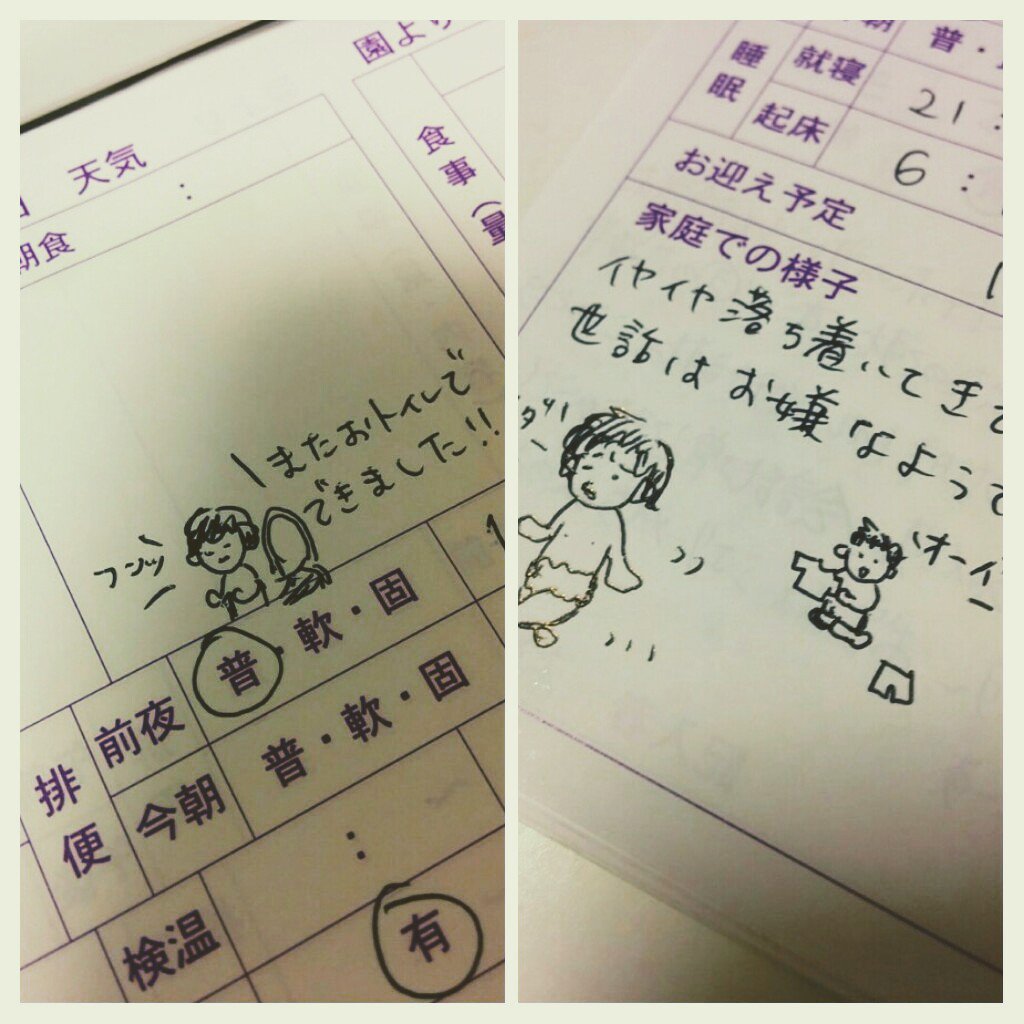 園より
天気
:
朝食
食事(量
またおトイレで
できました!!
フンッ
排便
前夜
普・軟・固
今朝
普・軟・固
:
検温
有
普・
睡眠
就寝
21:
起床
6:
お迎え予定
1
家庭での様子
イヤイヤ落ち着いてきて
世話はお嫌なようで
オーイ